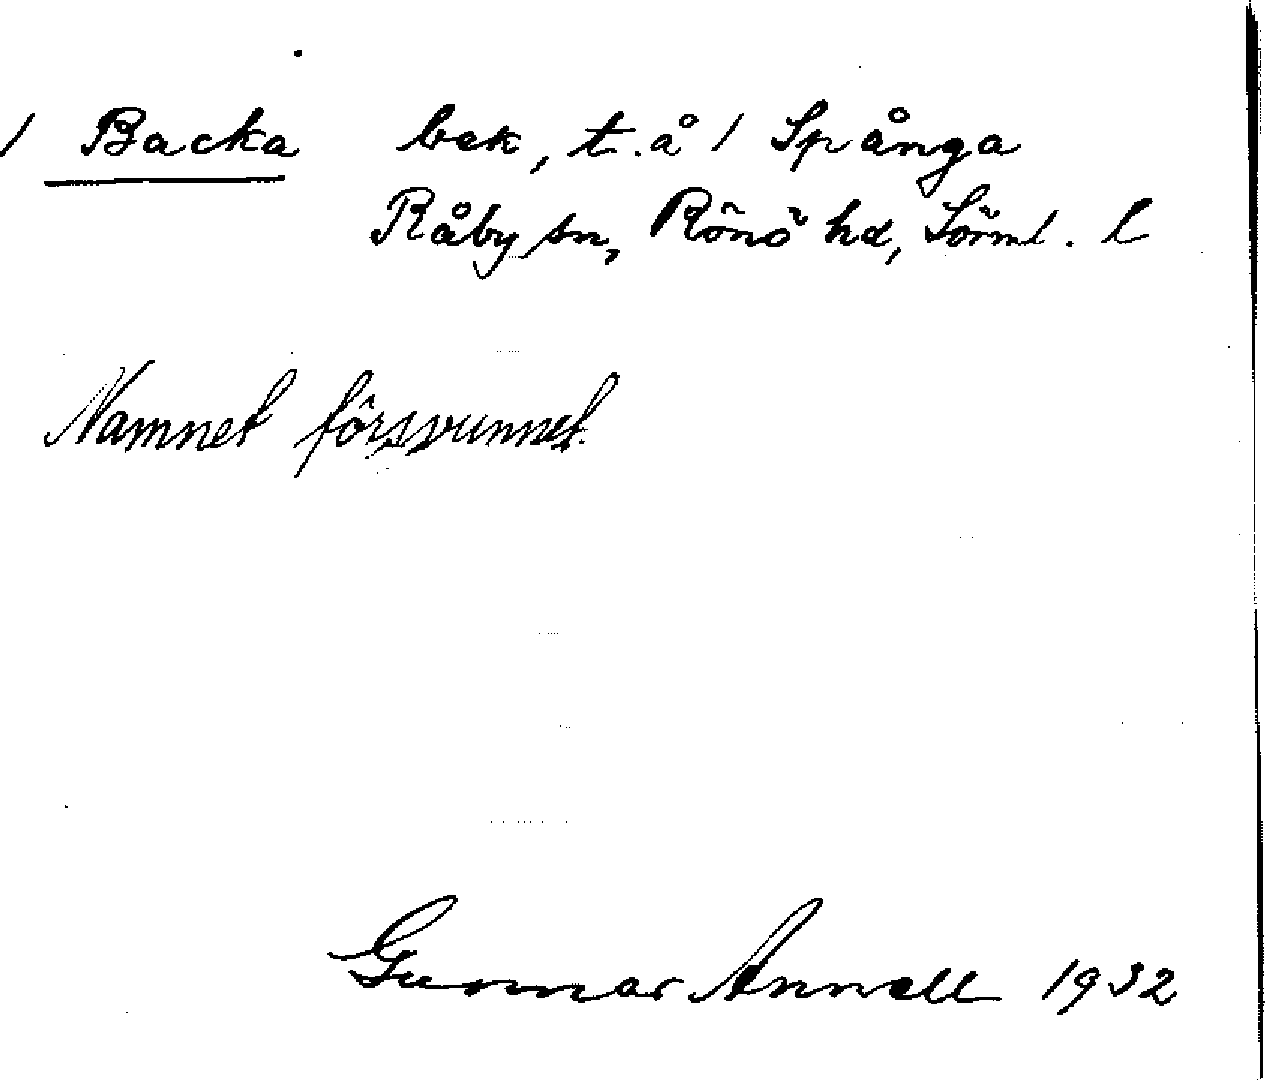 / Backa bek, t.å 1 Spånga
Råby sn, Rönö hd, Sörml. l
Namnet försvunnet.
Gunnar Annell 1932